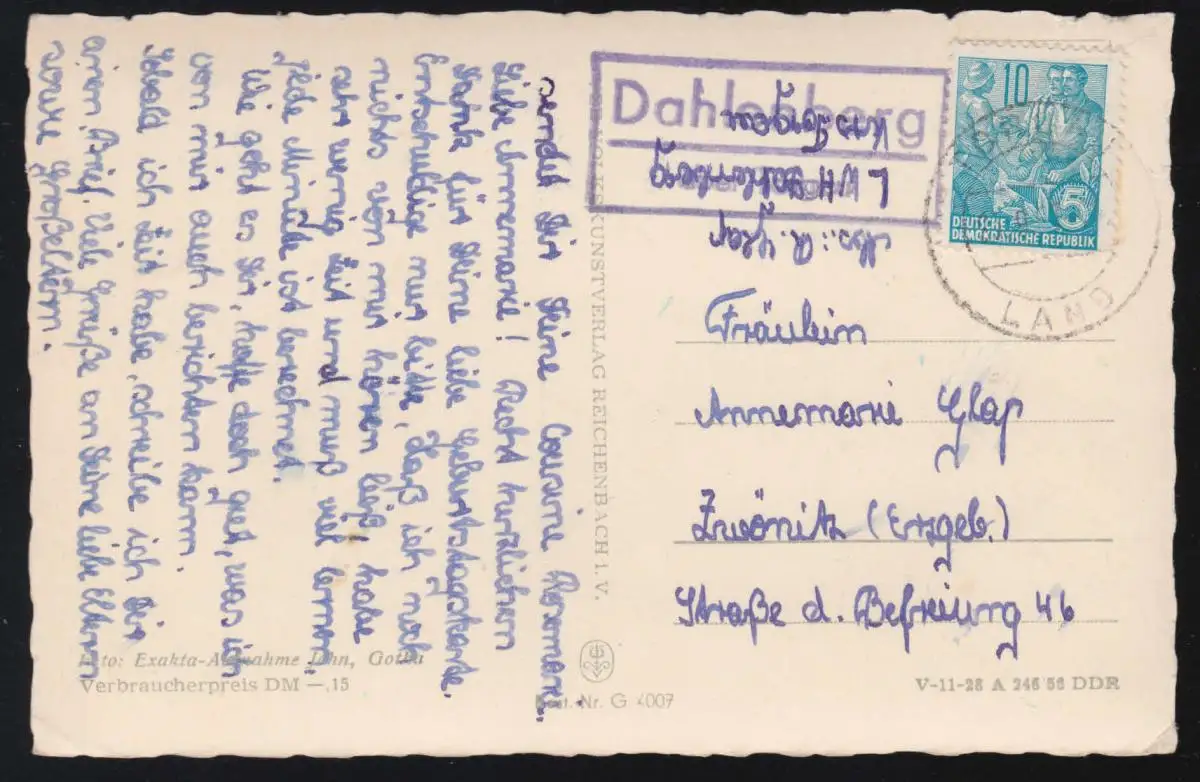 Liebe Annemarie! Recht herzlichen
Dank für Deine liebe Geburtstagskarte.
Entschuldige nur bitte, daß ich noch
nichts von mir hören ließ, habe
sehr wenig Zeit und muß viel lernen,
jede Minute ist berechnet.
Wie geht es Dir, hoffe doch gut, was ich
von mir auch berichten kann.
Sobald ich Zeit habe, schreibe ich Dir
einen Brief. Viele Grüße an Deine liebe Eltern
sowie Großeltern.
sendet Dir Deine Cousine Rosemarie.
Foto: Exakta-Aufnahme John, Gotha
Verbraucherpreis DM —,15
KUNSTVERLAG REICHENBACH I. V.
Best.-Nr. G 4007
V-11-28 A 246 56 DDR
Dahlenberg
Abs.: R. Glap
LVH Dahlenberg
Krs. Torgau
10
5
DEUTSCHE
DEMOKRATISCHE REPUBLIK
LAND
Fräulein
Annemarie Glap
Zwönitz (Erzgeb.)
Straße d. Befreiung 46